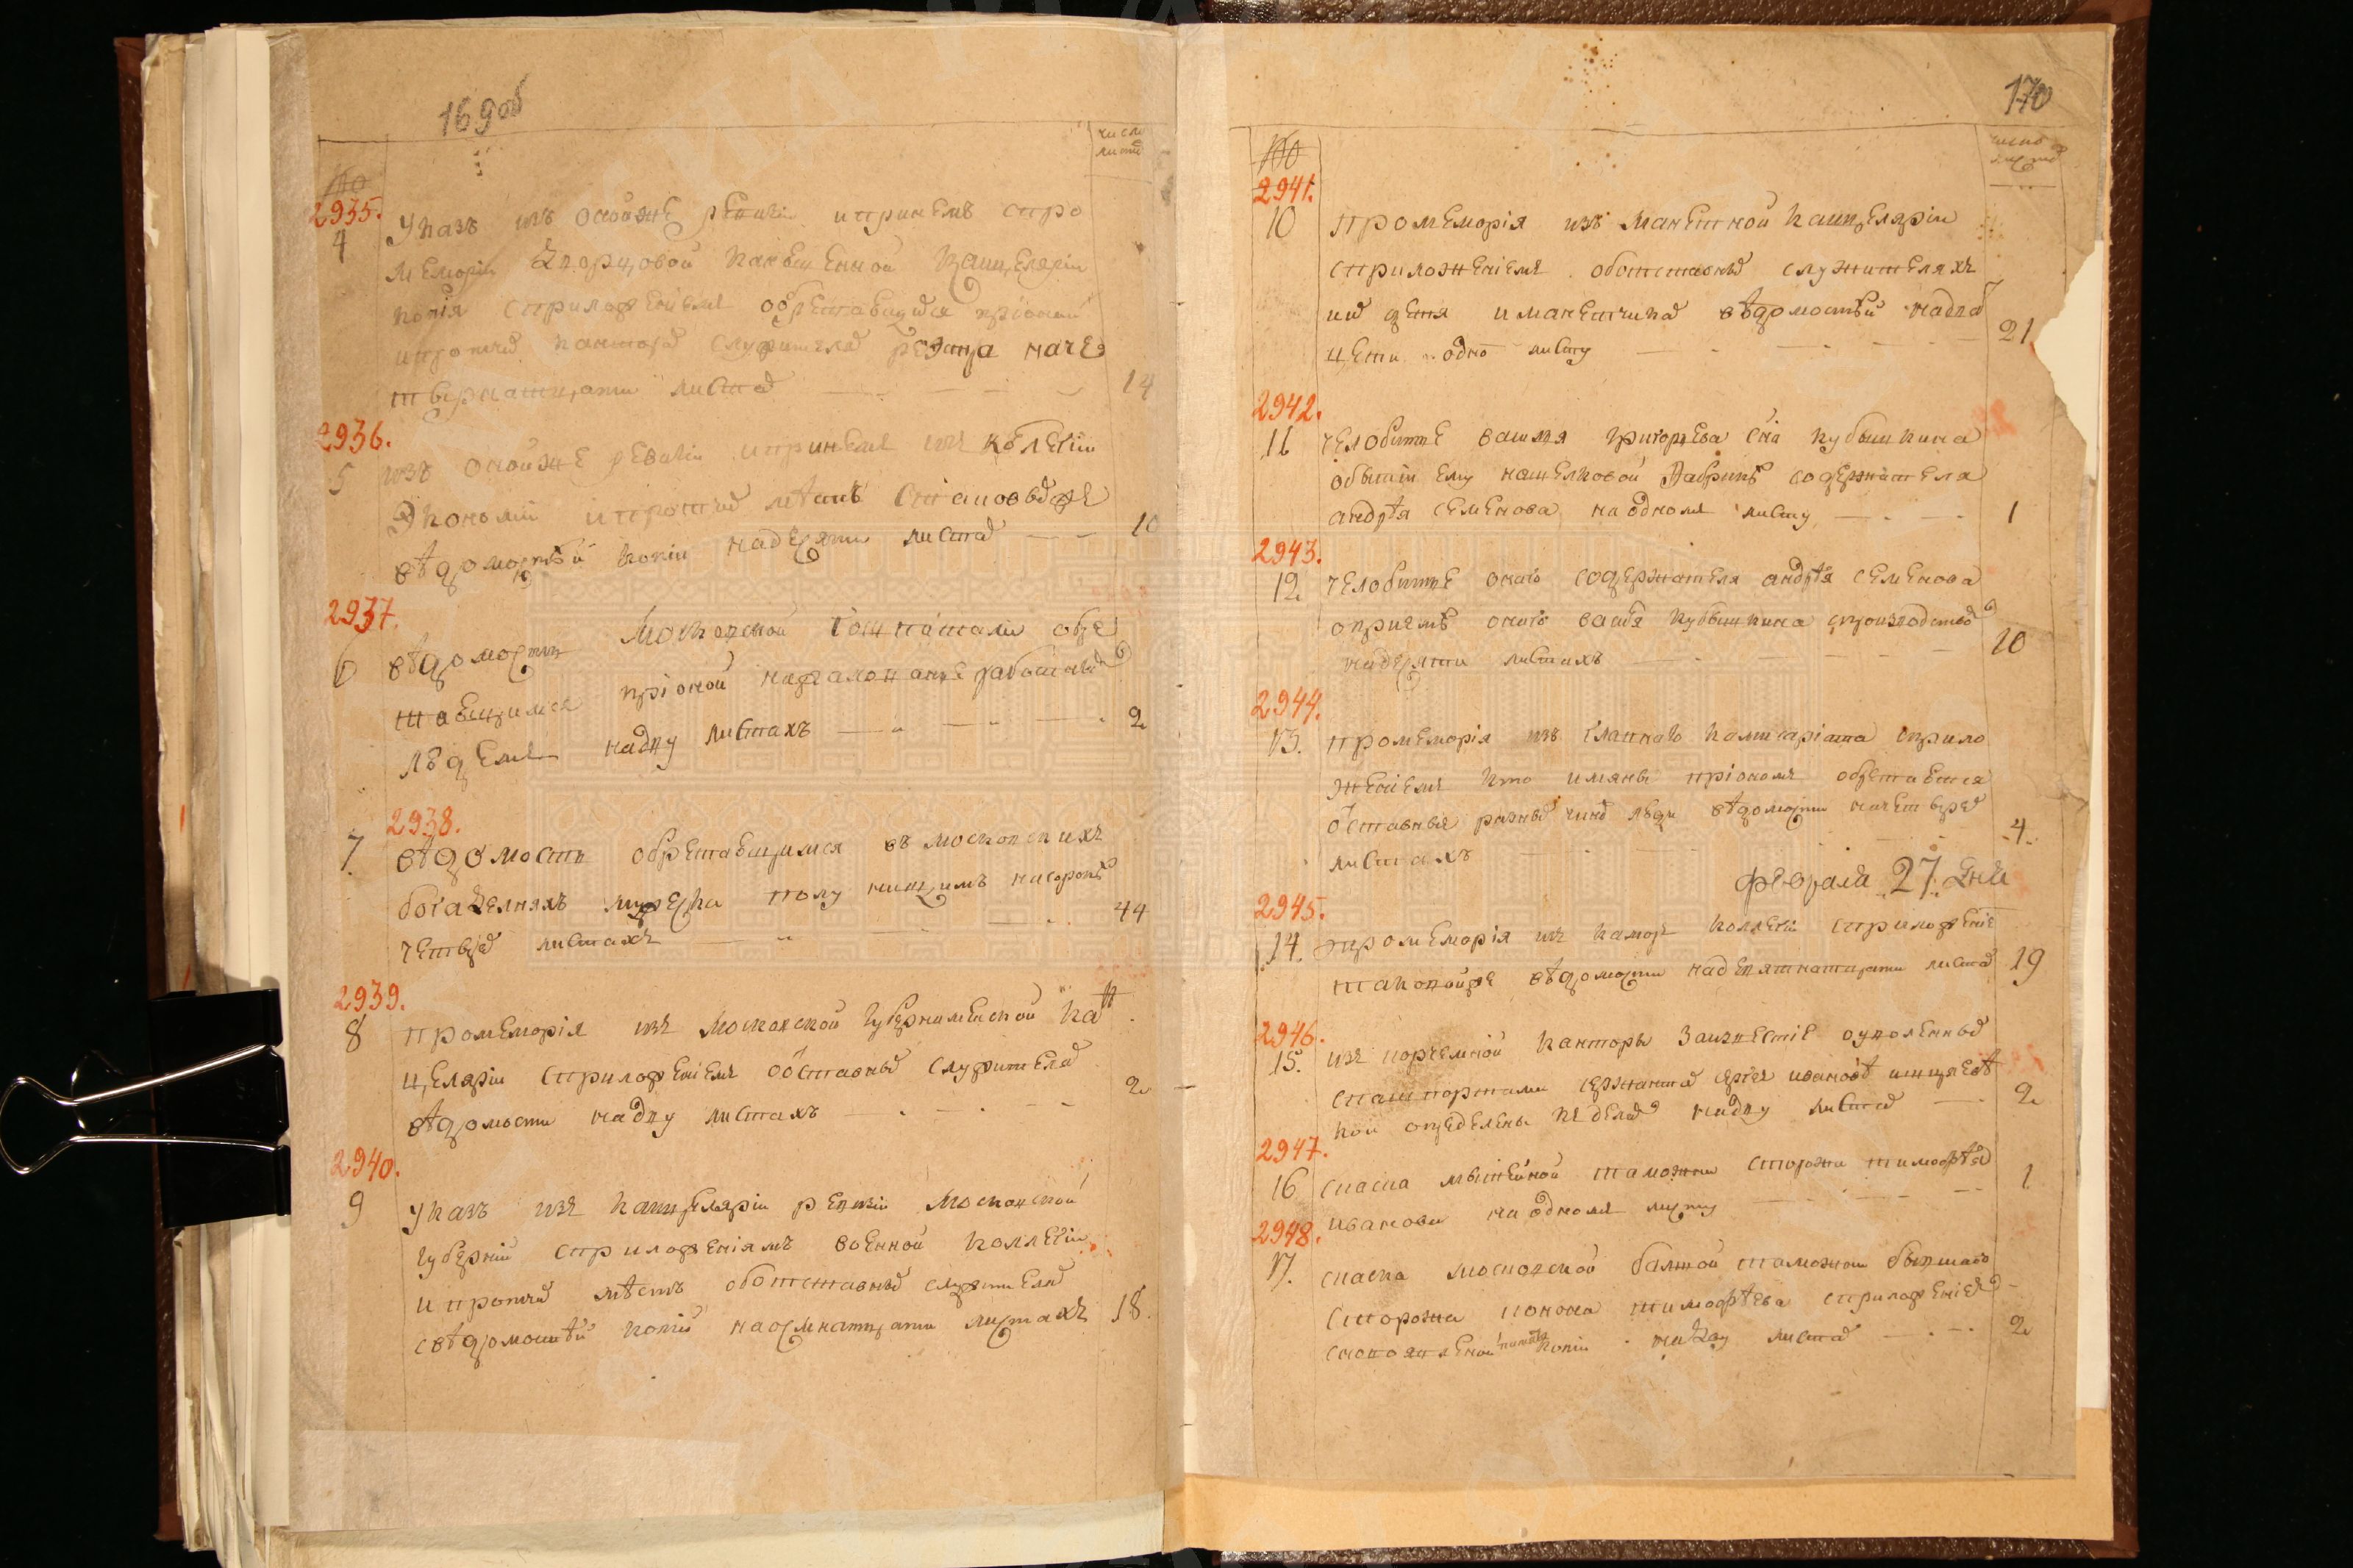 169 об
число
листов
2935.
4
Указъ изъ оной же ревизіи и при немъ с про
меморіи дворцовой канюшенной канцеляріи
копія с приложеніемъ обретающихся при оной
и протчих канторах служителех реэстра на че
тырнатцати листах
14
2936.
5
изъ оной же ревизіи и при немъ изъ колегіи
экономіи и протчих мѣстъ
вѣдомостей копіи на десяти листах
10
2937.
6
вѣдомость Московской гошпитали обре
тающимся при оной на жалованье работным
людемъ на дву листахъ
2
2938.
7
вѣдомость обретающимся въ московскихъ
богаделняхъ мужеска полу нищимъ на сороке
четырех листахъ
44
2939.
8
промеморія изъ Московской губернической кан
целяріи с приложеніемъ отставных служителех
вѣдомости на дву листахъ
2
2940.
9
указъ изъ канцеляріи ревизіи Московской
губерніи с приложеніямъ военной коллегіи
и протчих мѣстъ о отставных служителех
с вѣдомостей копіи на осмнатцати листахъ
18.
170
число
листов
2941.
10
промеморія изъ манетной канцеляріи
с приложеніемъ о отставных служителяхъ
их детя и манетчиках вѣдомостей на двад
цети одно листу
21
2942.
11
челобитье василя григорьева сна кубышкина
о бытіи ему на шелковой фабрике содержателя
андрѣя семенова на одномъ листу
1
2943.
12
челобитье оного содержателя андрѣя семенова
о приеме оного василя кубышкина с производством
на десяти листахъ
10
2944.
13.
промеморія изъ главнаго камисаріата с прило
женіемъ кто имяны при ономъ обретаются
отставные разных чинов люди вѣдомости на четырех
листахъ
4.
февраля 27 дня
2945.
14.
промеморія изъ камор коллегіи с приложеніе
таковой же вѣдомости на девятнатцати листах
19
2946.
15.
изъ корчемной канторы за известіе о уволенных
с пашпортами сержантах сергея ивановѣ
кои определены к делам на дву листах
2
2947.
16
скаска мытейной таможни сторожа тимофѣя
иванова на одномъ листу
1
2948.
17.
скаска московской болшой таможни бывшаго
сторожа конона тимофѣева с приложеніем
копіи на дву листах
2